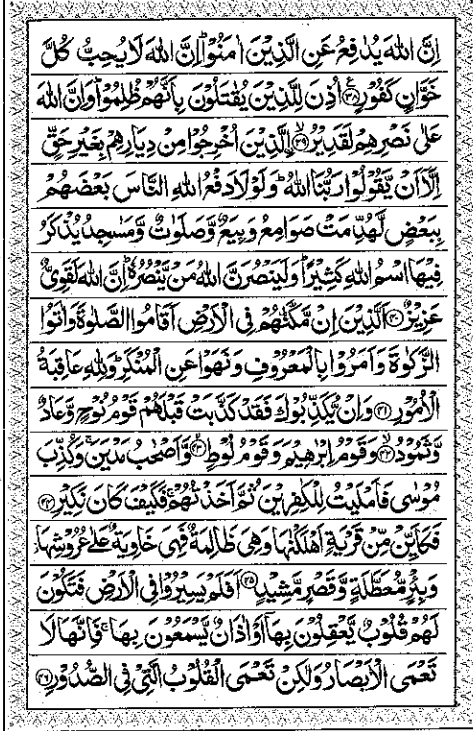 اِنَّ اللهَ يُدٰفِعُ عَنِ الَّذِيْنَ اٰمَنُوْا ؕ اِنَّ اللهَ لَا يُحِبُّ كُلَّ
خَوَّانٍ كَفُوْرٍ ﴿۳۸﴾ اُذِنَ لِلَّذِيْنَ يُقٰتَلُوْنَ بِاَنَّهُمْ ظُلِمُوْا ؕ وَاِنَّ اللهَ
عَلٰى نَصْرِهِمْ لَقَدِيْرُ ﴿۳۹﴾ اِلَّذِيْنَ اُخْرِجُوْا مِنْ دِيَارِهِمْ بِغَيْرِ حَقٍّ
اِلَّاۤ اَنْ يَّقُوْلُوْا رَبُّنَا اللهُ ؕ وَلَوْلَا دَفْعُ اللهِ النَّاسَ بَعْضَهُمْ
بِبَعْضٍ لَّهُدِّمَتْ صَوَامِعُ وَبِيَعٌ وَّصَلَوٰتٌ وَّمَسٰجِدُ يُذْكَرُ
فِيْهَا اسْمُ اللهِ كَثِيْرًا ؕ وَلَيَنْصُرَنَّ اللهُ مَنْ يَّنْصُرُهٗ ؕ اِنَّ اللهَ لَقَوِىٌّ
عَزِيْزٌ ﴿۴۰﴾ اَلَّذِيْنَ اِنْ مَّكَّنّٰهُمْ فِى الْاَرْضِ اَقَامُوا الصَّلٰوةَ وَاٰتَوُا
الزَّكٰوةَ وَاَمَرُوْا بِالْمَعْرُوْفِ وَنَهَوْا عَنِ الْمُنْكَرِ ؕ وَلِلّٰهِ عَاقِبَةُ
الْاُمُوْرِ ﴿۴۱﴾ وَاِنْ يُّكَذِّبُوْكَ فَقَدْ كَذَّبَتْ قَبْلَهُمْ قَوْمُ نُوْحٍ وَّعَادٌ
وَّثَمُوْدُ ﴿۴۲﴾ وَقَوْمُ اِبْرٰهِيْمَ وَقَوْمُ لُوْطٍ ﴿۴۳﴾ وَّاَصْحٰبُ مَدْيَنَ ۚ وَكُذِّبَ
مُوْسٰى فَاَمْلَيْتُ لِلْكٰفِرِيْنَ ثُمَّ اَخَذْتُهُمْ ۚ فَكَيْفَ كَانَ نَكِيْرِ ﴿۴۴﴾
فَكَاَيِّنْ مِّنْ قَرْيَةٍ اَهْلَكْنٰهَا وَهِىَ ظَالِمَةٌ فَهِىَ خَاوِيَةٌ عَلٰى عُرُوْشِهَا
وَبِئْرٍ مُّعَطَّلَةٍ وَّقَصْرٍ مَّشِيْدٍ ﴿۴۵﴾ اَفَلَمْ يَسِيْرُوْا فِى الْاَرْضِ فَتَكُوْنَ
لَهُمْ قُلُوْبٌ يَّعْقِلُوْنَ بِهَاۤ اَوْ اٰذَانٌ يَّسْمَعُوْنَ بِهَا ۚ فَاِنَّهَا لَا
تَعْمَى الْاَبْصَارُ وَلٰكِنْ تَعْمَى الْقُلُوْبُ الَّتِىْ فِى الصُّدُوْرِ ﴿۴۶﴾